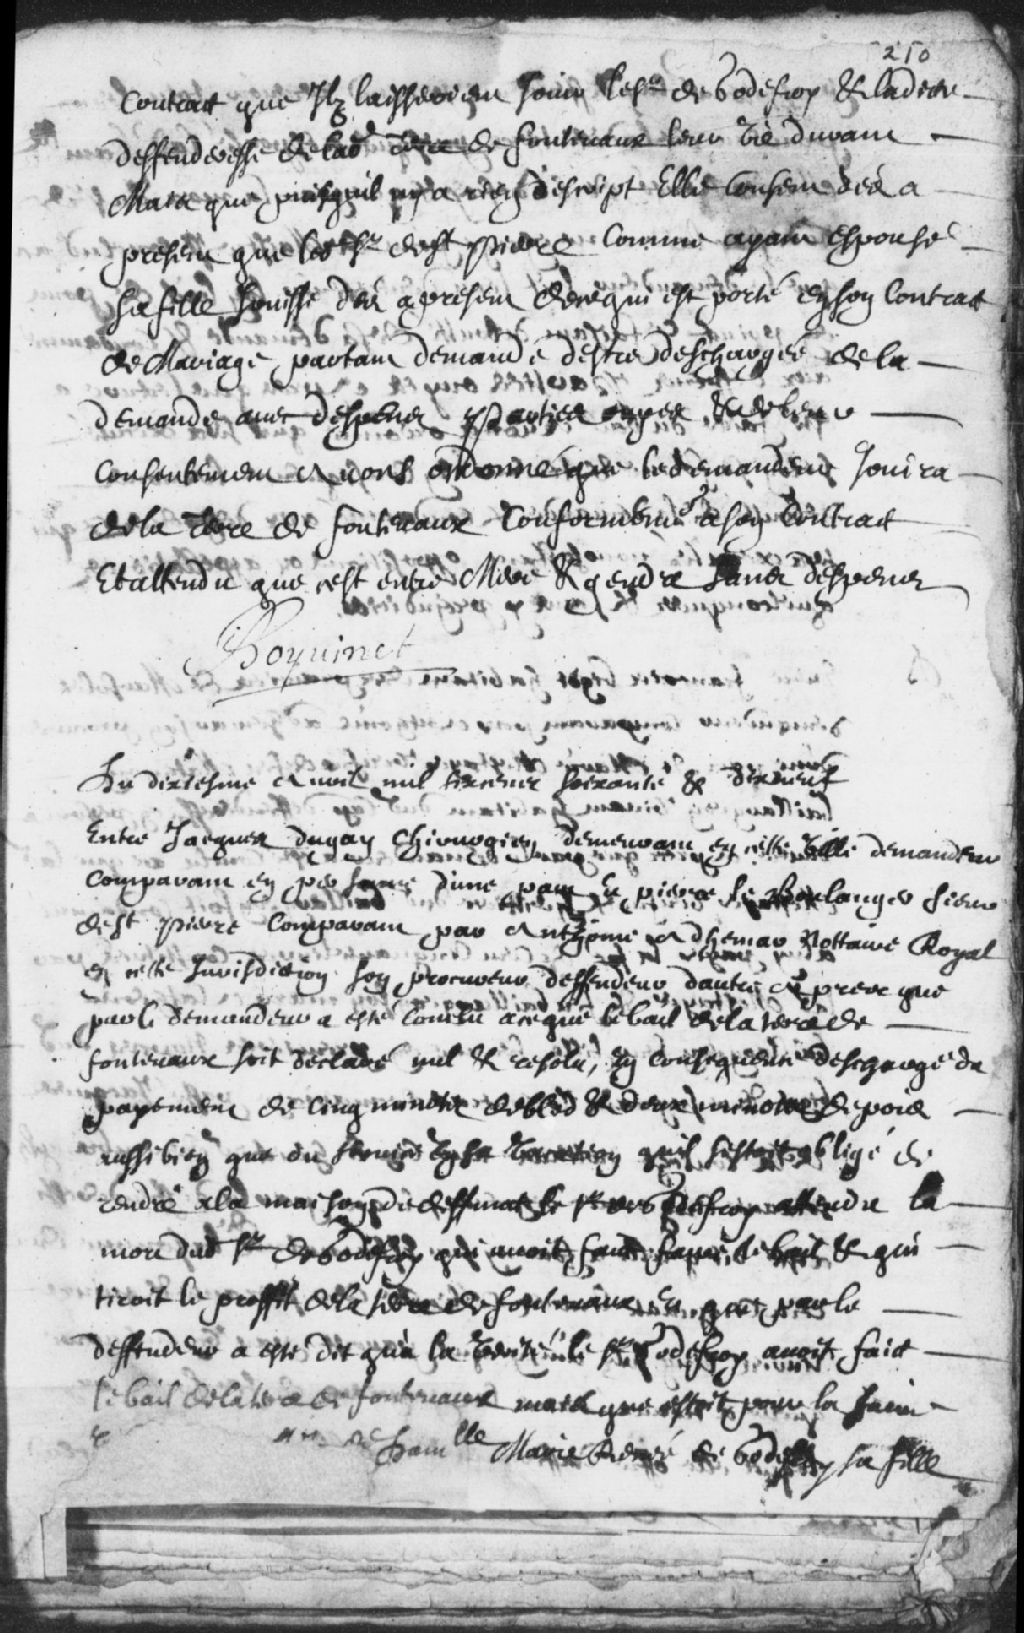 210
contract que Ilz laisseroient Jouir le sr de Godefroy & ladite
deffenderesse de lad terre de fontenaux leur vie durant
Mais que puisquil ny a rien descript Elle consent dès a
present que led sr de st pierre Comme ayant espousé
sa fille Jouisse dès a present de ce qui est porté en son Contract
de Mariage partant demande destre deschargée de la
demande avec despens parties ouyes & de leur
consentement avons ordonné que le demandeur Jouira
de la terre de fontenaux Conformemt a son Contract
Et attendu que cest entre Mere & gendre sans despens
Boyvinet
Du dixiesme Avril mil six cens soixante & dixneuf
Entre Jacques dugay chirurgien demeurant en cette ville demandeur
comparant en personne dune part Et pierre le Boulanger sieur
de st pierre Comparant par Anthoine Adhemar Nottaire Royal
en cette Jurisdiction son procureur deffendeur dautre Et parce que
par le demandeur a este conclu a ce que le bail de la terre de
fontenaux soit déclaré nul & resolu, en consequence deschargé du
payement de cinq minotz de bled & deux minotz de pois
aussi bien que du quil sestoit obligé de
rendre a la maison du deffunct le sr de Godefroy attendu la
mort dud sr de Godefroy qui avoit faict le bail & qui
tiroit le proffit de la terre de fontenaux Et que par le
deffendeur a este dit qua la verité le sr Godefroy avoit faict
le bail de la terre de fontenaux mais que cestoit pour la
damlle Marie Renée de Godefroy sa fille